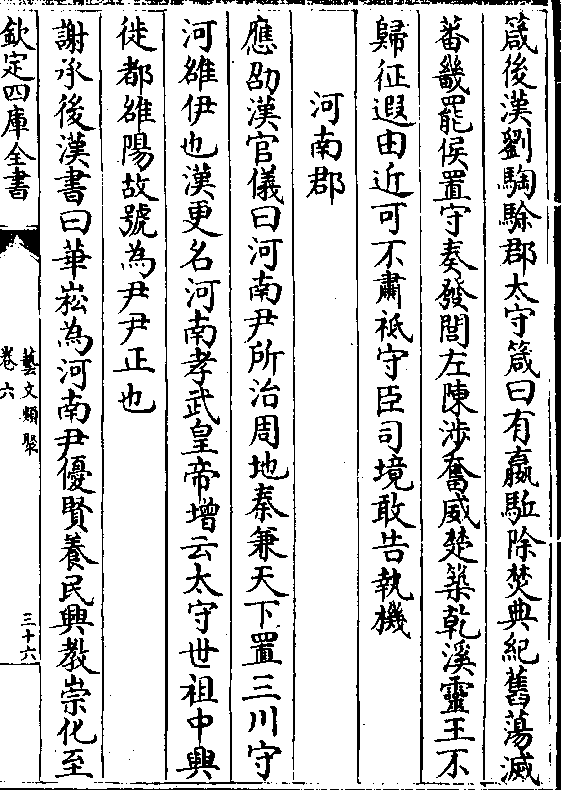 箴後漢劉騊駼郡太守箴曰有嬴駈除焚典紀舊蕩滅
蕃畿罷侯置守奏發閭左陳涉奮威楚築乾溪靈王不
歸征遐由近可不肅祗守臣司境敢告執機
河南郡
應劭漢官儀曰河南尹所治周地秦兼天下置三川守
河雒伊也漢更名河南孝武皇帝增云太守世祖中興
徙都雒陽故號為尹尹正也
謝承後漢書曰華崧為河南尹優賢養民興教崇化至
欽定四庫全書
藝文類聚
卷六
三十六